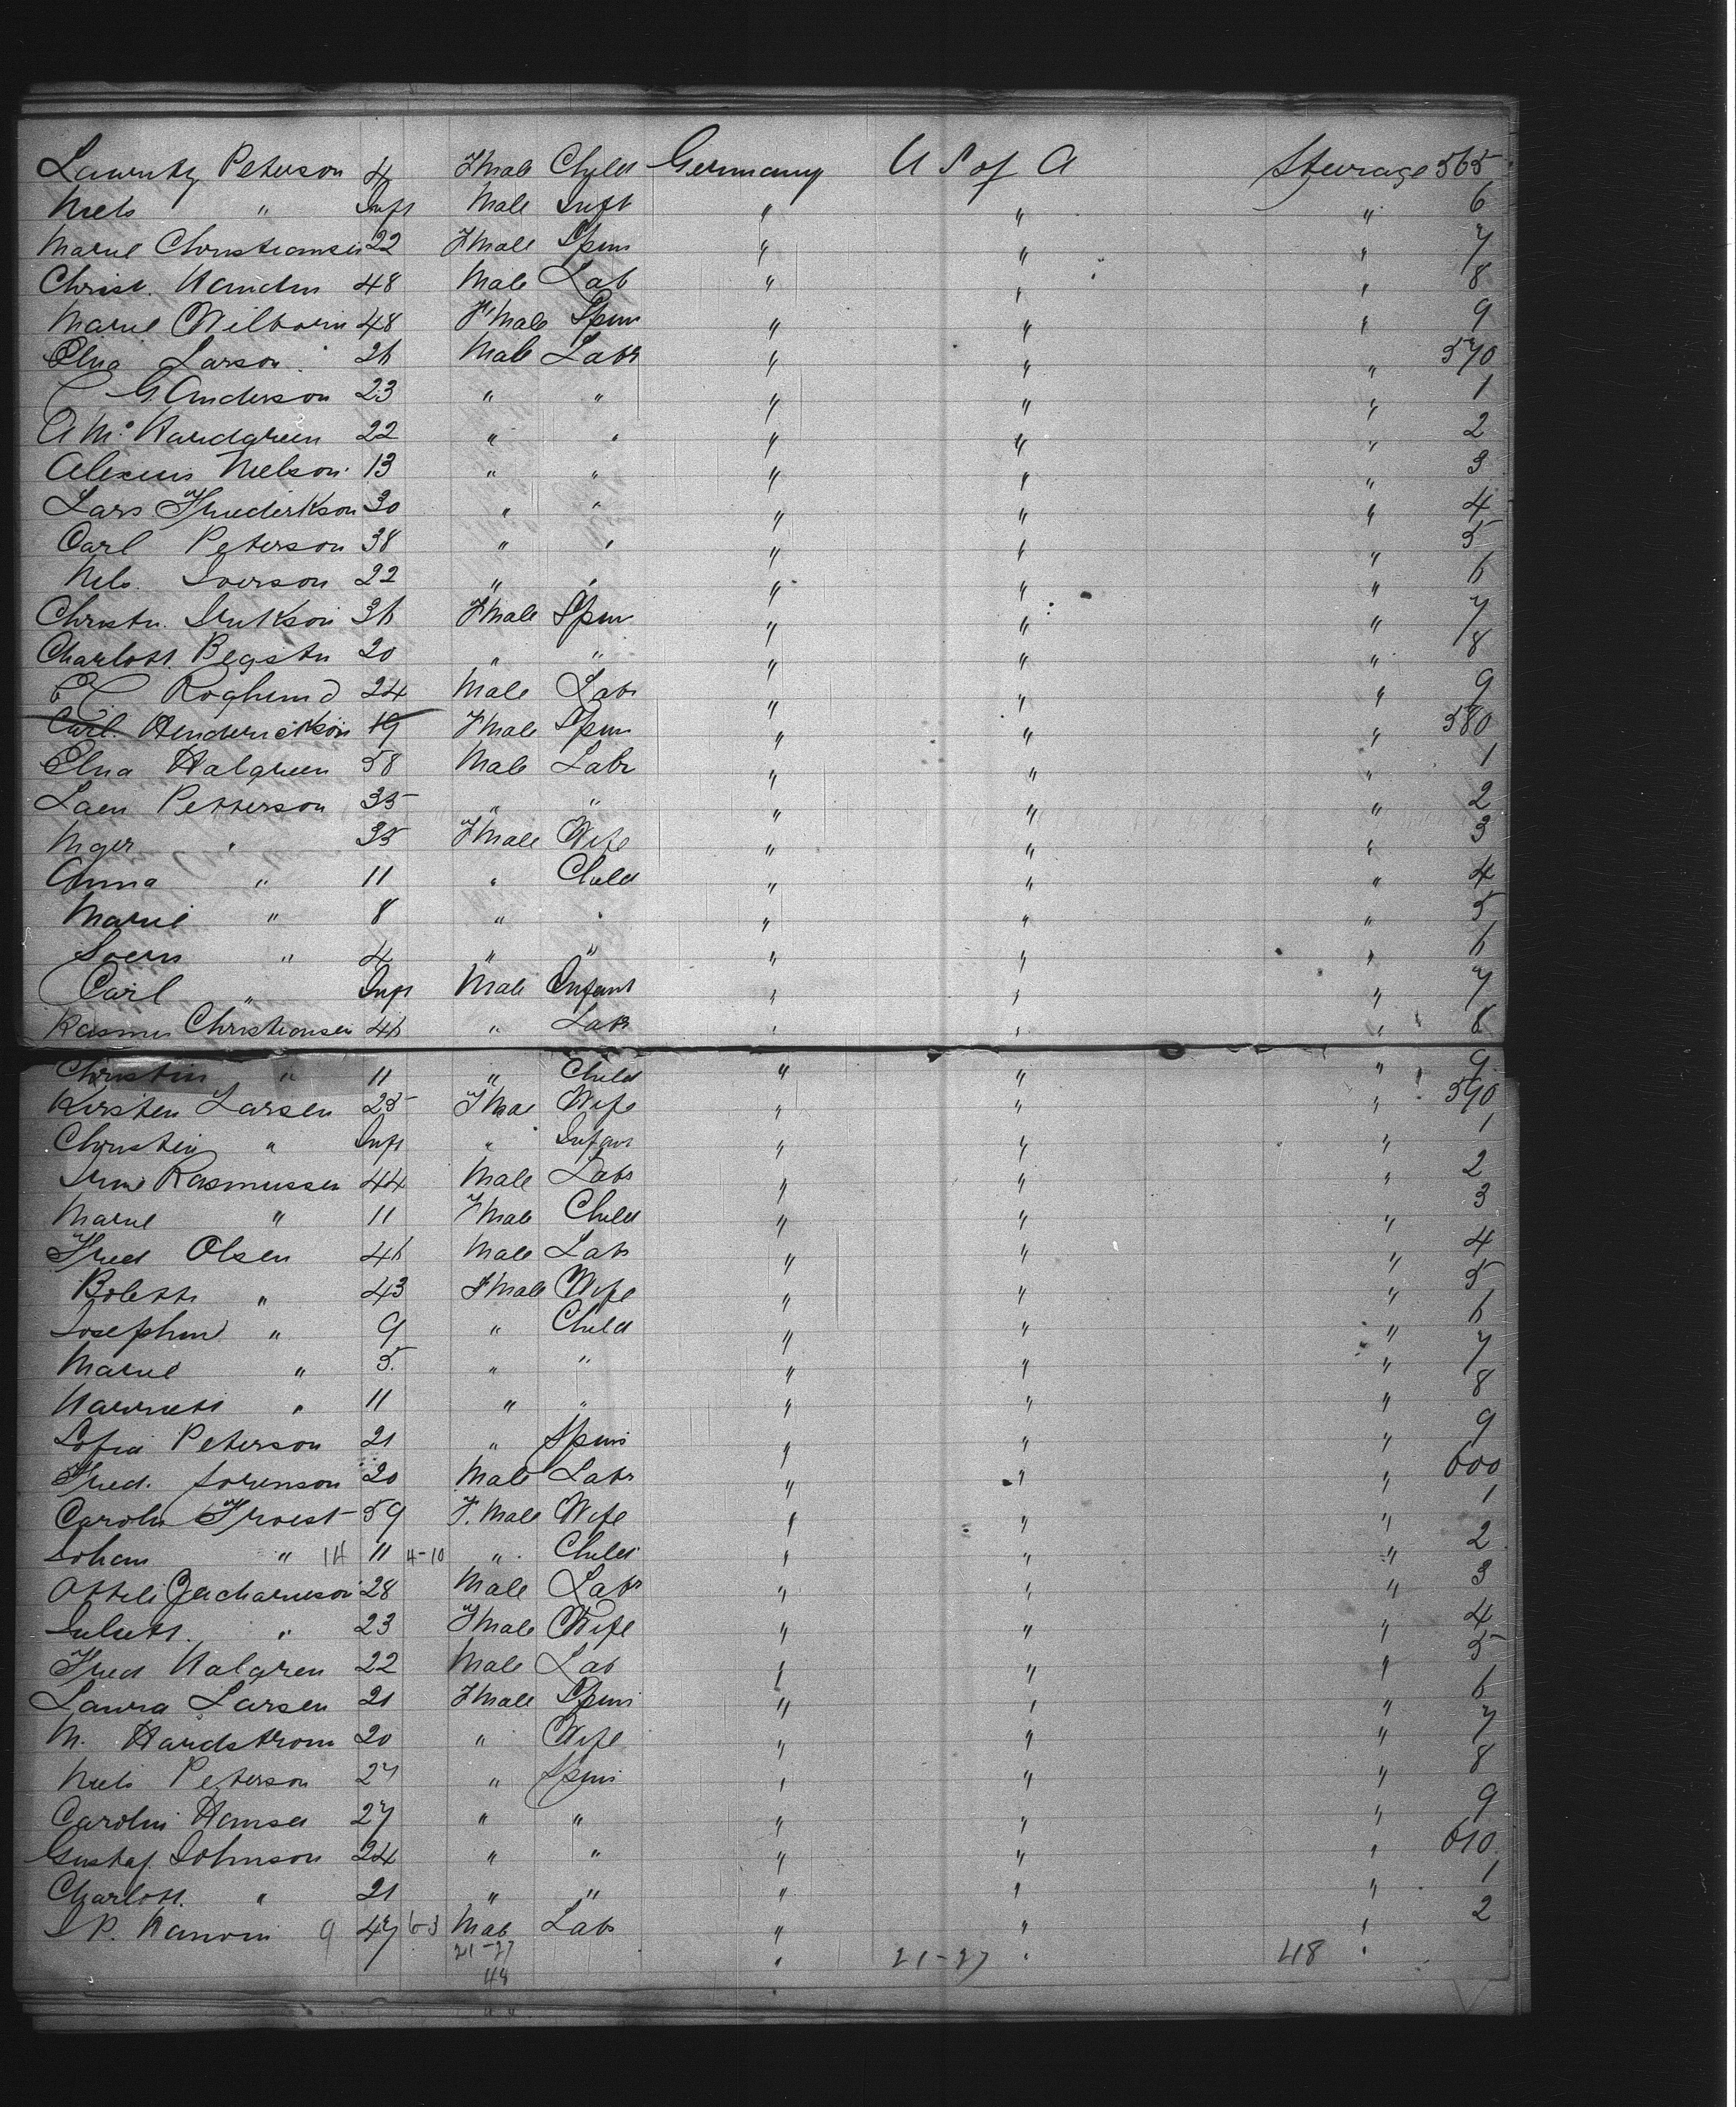 Lawritz Peterson 4 Fmale Child Germany U S of A Steerage 565
Niels " Inft Male Inft " " " 6
Marie Christiansen 22 Fmale Spin " " " 7
Christ. 48 Male Lab " " " 8
Marie Wilborin 48 Fmale Spin " " " 9
Elna Larson 26 Male Labr " " " 570
C G. Anderson 23 " " " " " 1
A M. Hardgreen 22 " " " " " 2
Alexius Nelson 13 " " " " " 3
Lars Frederkson 30 " " " " " 4
Carl Peterson 38 " " " " " 5
Nels. Iverson 22 " " " " " 6
Christn. 36 Fmale Spin " " " 7
Charlott. Begstn 20 " " " " " 8
C Roghund 24 Male Labr " " " 9
Carl. Henderickson 19 Fmale Spin " " " 580
Elna Halgreen 58 Male Labr " " " 1
Laen Petterson 35 " " " " " 2
Inger " 35 Fmale Wife " " " 3
Anna " 11 " Child " " " 4
Marie " 8 " " " " " 5
Soern " 4 " " " " " 6
Carl " Inft Male Infant " " " 7
Rasmus Christiansen 46 " Labr " " " 8
Christin " 11 " Child " " " 9
Kirsten Larsen 25 Fmae Wife " " " 590
Christin " Inft " Infant " " " 1
Rasmussen 44 Male Labr " " " 2
Marie " 11 Fmale Child " " " 3
Fred Olsen 46 Male Labr " " " 4
Bolett " 43 Fmale Wife " " " 5
Josephin " 9 " Child " " " 6
Marie " 5. " " " " " 7
Harriett " 11 " " " " " 8
Sofia Peterson 21 " Spin " " " 9
Fred. Sorenson 20 Male Labr " " " 600
Carolin Froest 59 F. Male Wife " " " 1
Johan " 14 11 4-10 " Child " " " 2
Ottili Zacharieson 28 Male Labr " " " 3
Juliett. " 23 Fmale Wife " " " 4
Fred Halgren 22 Male Lab " " " 5
Laura Larsen 21 Fmale Spin " " " 6
M. Hardstrom 20 " Wife " " " 7
Niels Peterson 27 " Spin " " " 8
Carolin Hansen 27 " " " " " 9
Gustaf Johnson 24 " " " " " 610
Charlott. " 21 " " " " " 1
P. 9 47 6-3 Male Labr " " " 2
21-27 " 21-27 " 48 "
48